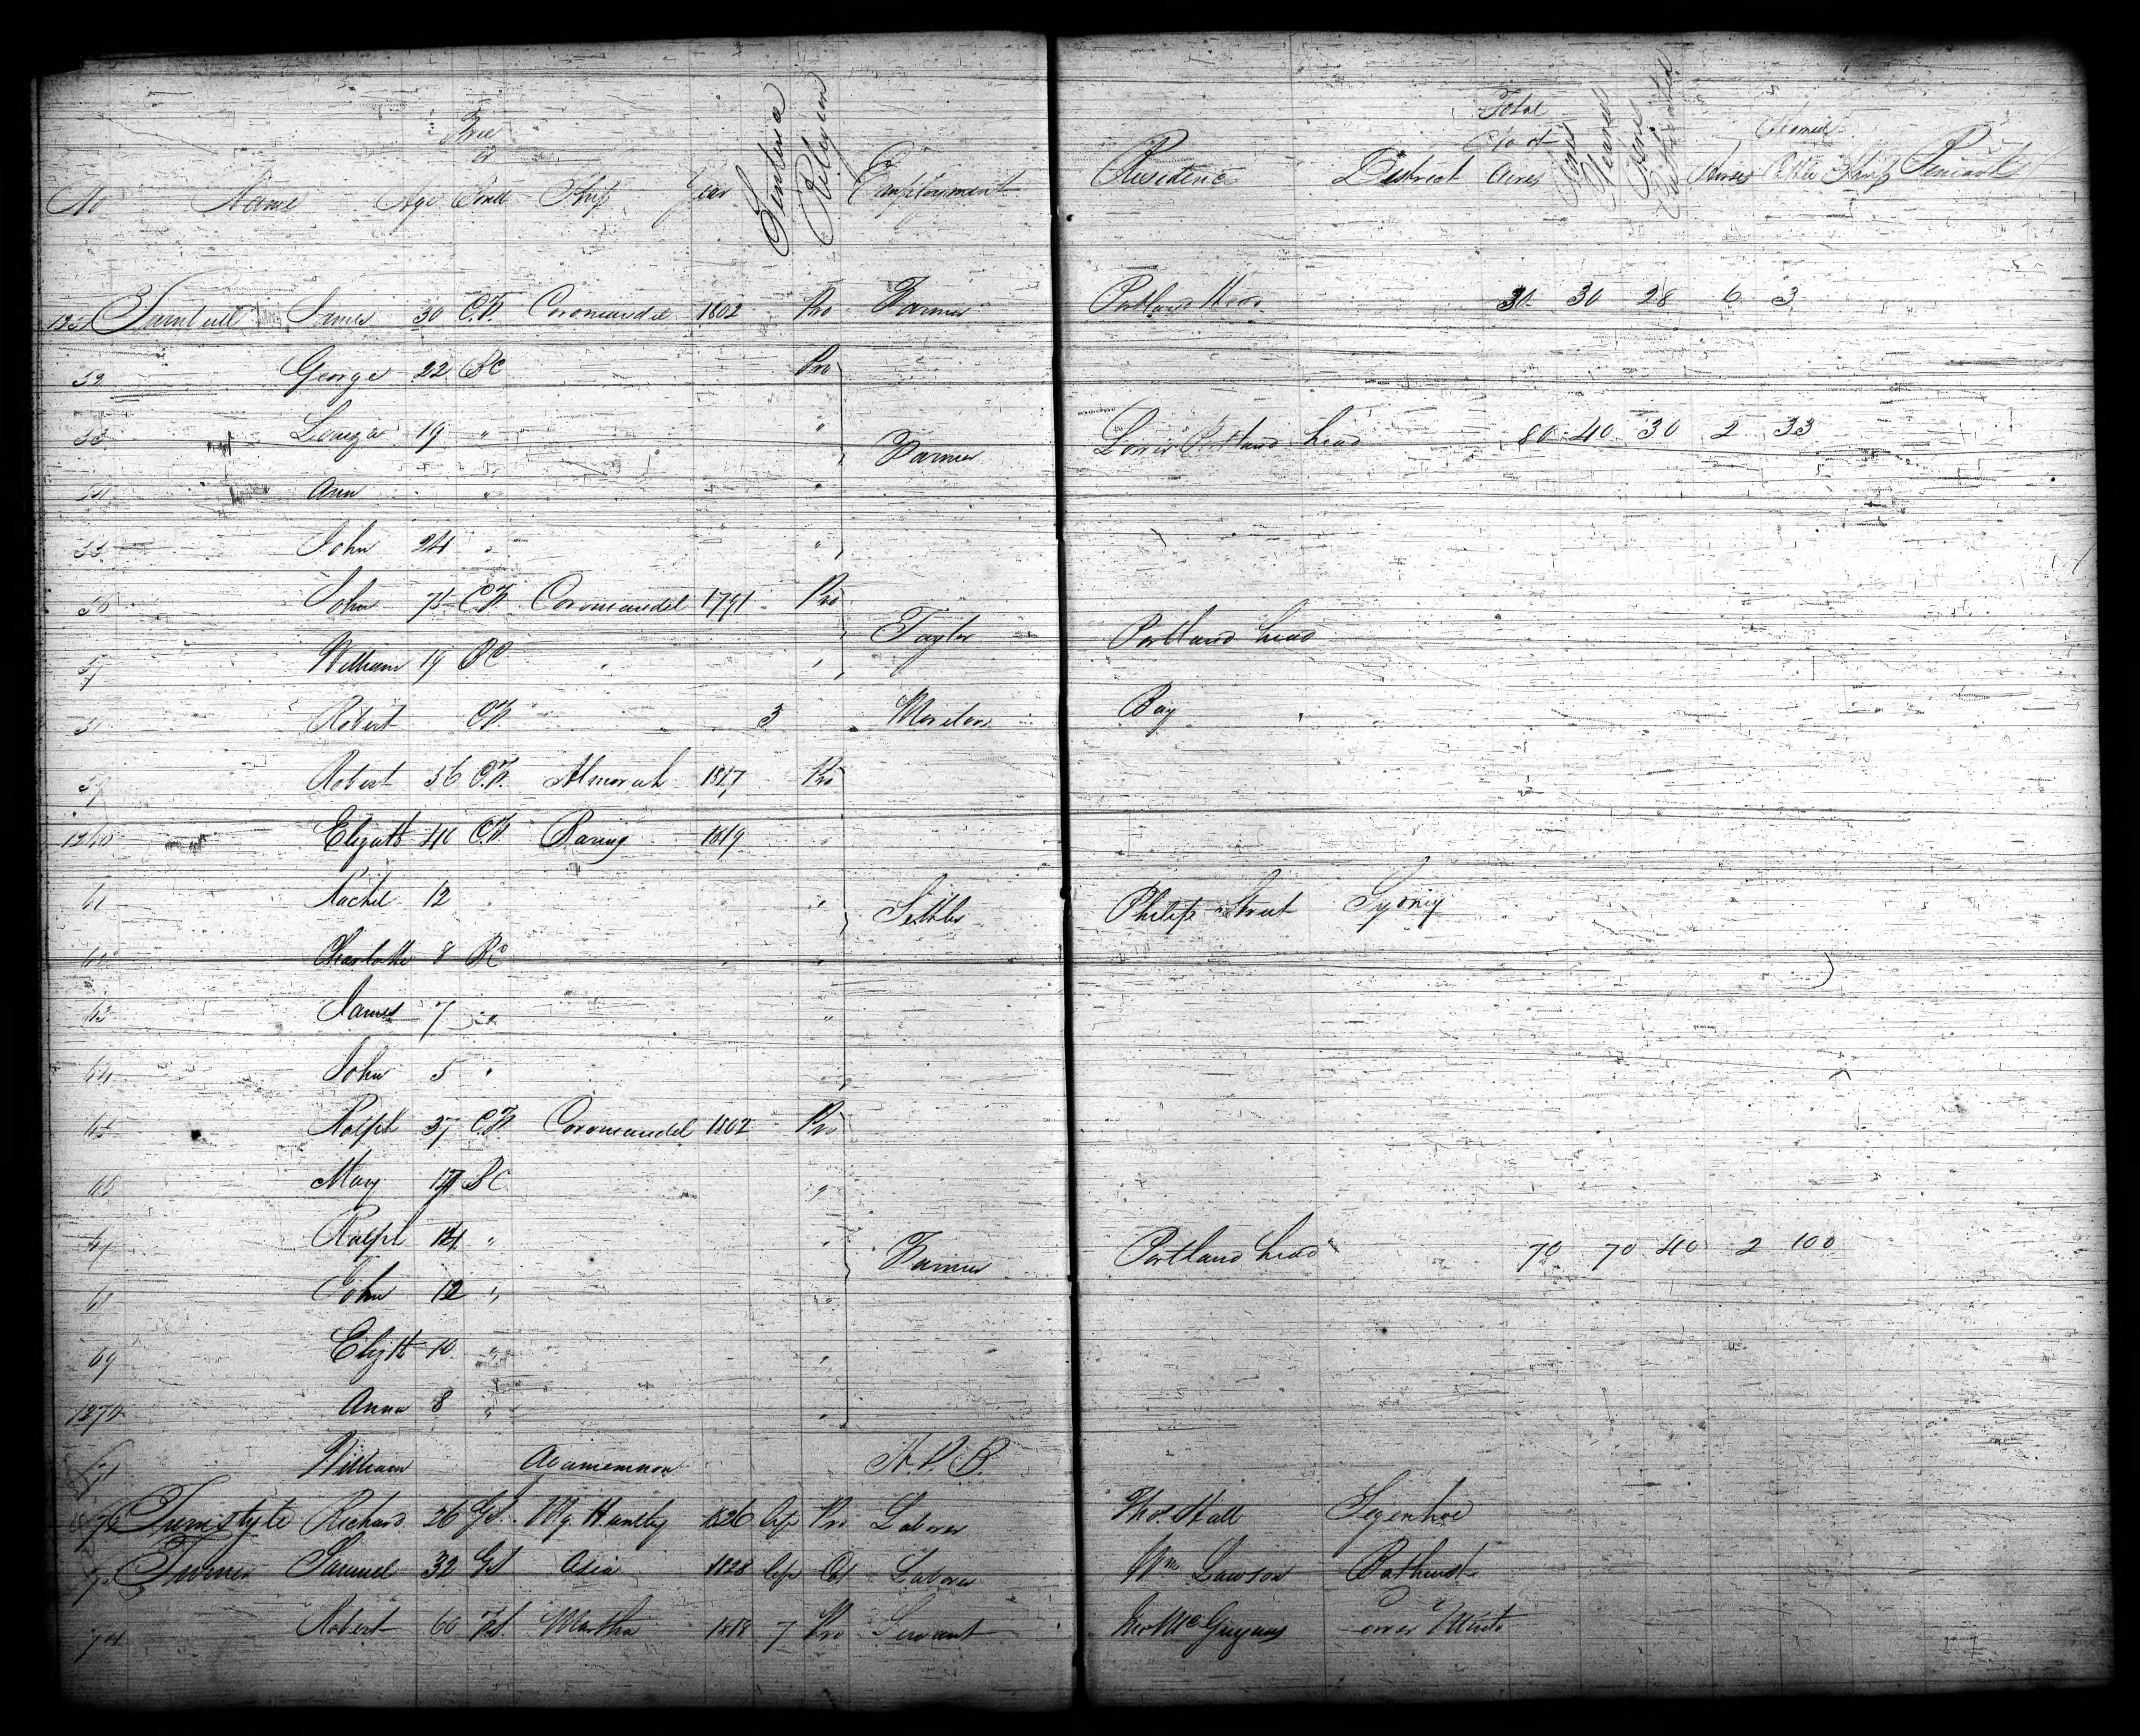 No Name Age Free or Cond Ship Year Sentence Religion Employment Residence District Total No of Acres Acres Cleared Acres Cultivated Horses Horned Cattle Sheep Remarks
1251 Turnbull James 30 C.F. Coromandel 1802 Pro Farmer Portland Head 30 30 28 6 3
52 George 22 BC Pro
53 Louiza 19 " " Farmer Lower Portland head 80 40 30 2 33
54 Ann " "
55 John 24 " "
56 John 75 C.F. Coromandel 1791 Pro Taylor Portland head
57 William 19 BC "
Robert C.F. 3 Bay
59 Robert 36 C.F. Almorah 1817 Pro
1260 Elizath 40 C.F. Baring 1819 "
61 Rachel 12 " Settler Philip Street Sydney
62 Charlotte 8 BC "
63 James 7 " "
64 John 5 " "
65 Ralph 37 C.F. Coromandel 1802 Pro
66 Mary 17 BC "
67 Ralph 14 " " Farmer Portland head 70 70 40 2 100
John 12 " "
69 Elizth 10 " "
1270 Anna 8 " "
71 William Agamemnon
72 Turnstyle Richard 26 GS. Mq Huntley 1826 Life Pro Laborer Thos Hall Segenhoe
Samuel 32 GS Asia 1828 Life Laborer Wm Lawson Bathurst
74 Robert 60 FS. Martha 1818 7 Pro Servant